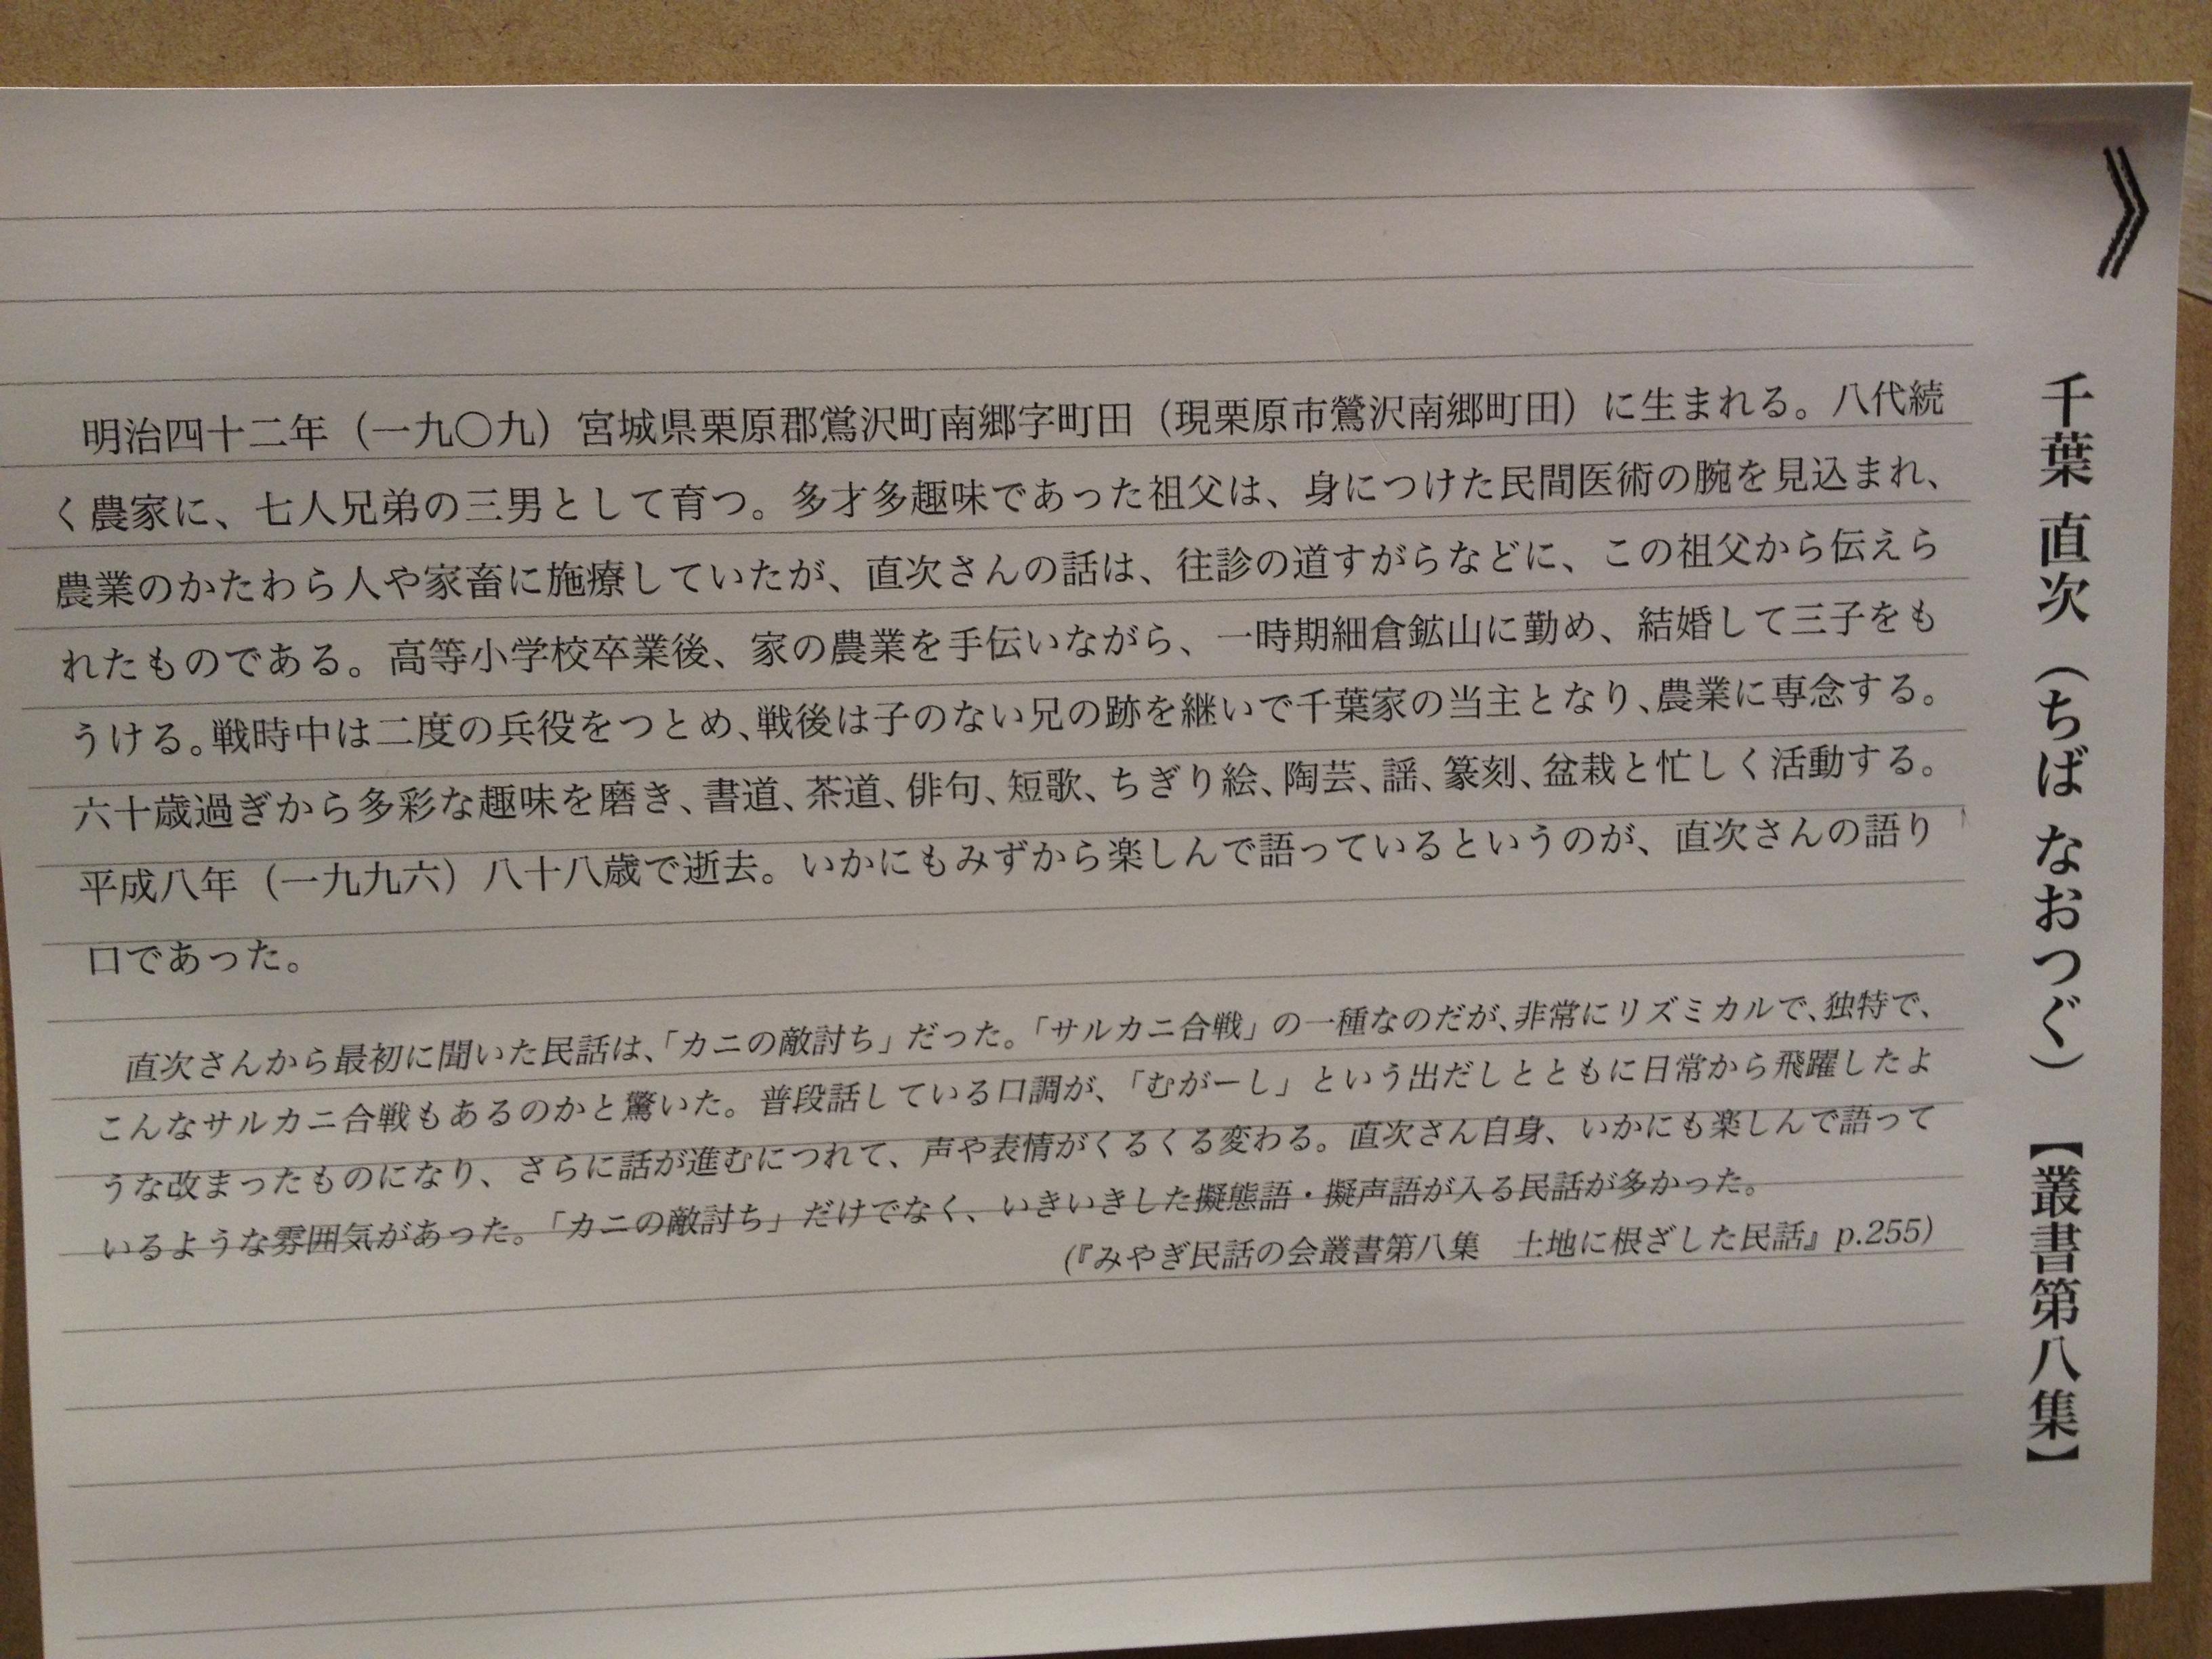 》
千葉 直次（ちば なおつぐ）【叢書第八集】
明治四十二年（一九〇九）宮城県栗原郡鶯沢町南郷字町田（現栗原市鶯沢南郷町田）に生まれる。八代続
く農家に、七人兄弟の三男として育つ。多才多趣味であった祖父は、身につけた民間医術の腕を見込まれ、
農業のかたわら人や家畜に施療していたが、直次さんの話は、往診の道すがらなどに、この祖父から伝えら
れたものである。高等小学校卒業後、家の農業を手伝いながら、一時期細倉鉱山に勤め、結婚して三子をも
うける。戦時中は二度の兵役をつとめ、戦後は子のない兄の跡を継いで千葉家の当主となり、農業に専念する。
六十歳過ぎから多彩な趣味を磨き、書道、茶道、俳句、短歌、ちぎり絵、陶芸、謡、篆刻、盆栽と忙しく活動する。
平成八年（一九九六）八十八歳で逝去。いかにもみずから楽しんで語っているというのが、直次さんの語り
口であった。
直次さんから最初に聞いた民話は、「カニの敵討ち」だった。「サルカニ合戦」の一種なのだが、非常にリズミカルで、独特で、
こんなサルカニ合戦もあるのかと驚いた。普段話している口調が、「むがーし」という出だしとともに日常から飛躍したよ
うな改まったものになり、さらに話が進むにつれて、声や表情がくるくる変わる。直次さん自身、いかにも楽しんで語って
いるような雰囲気があった。「カニの敵討ち」だけでなく、いきいきした擬態語・擬声語が入る民話が多かった。
(『みやぎ民話の会叢書第八集　土地に根ざした民話』p.255)